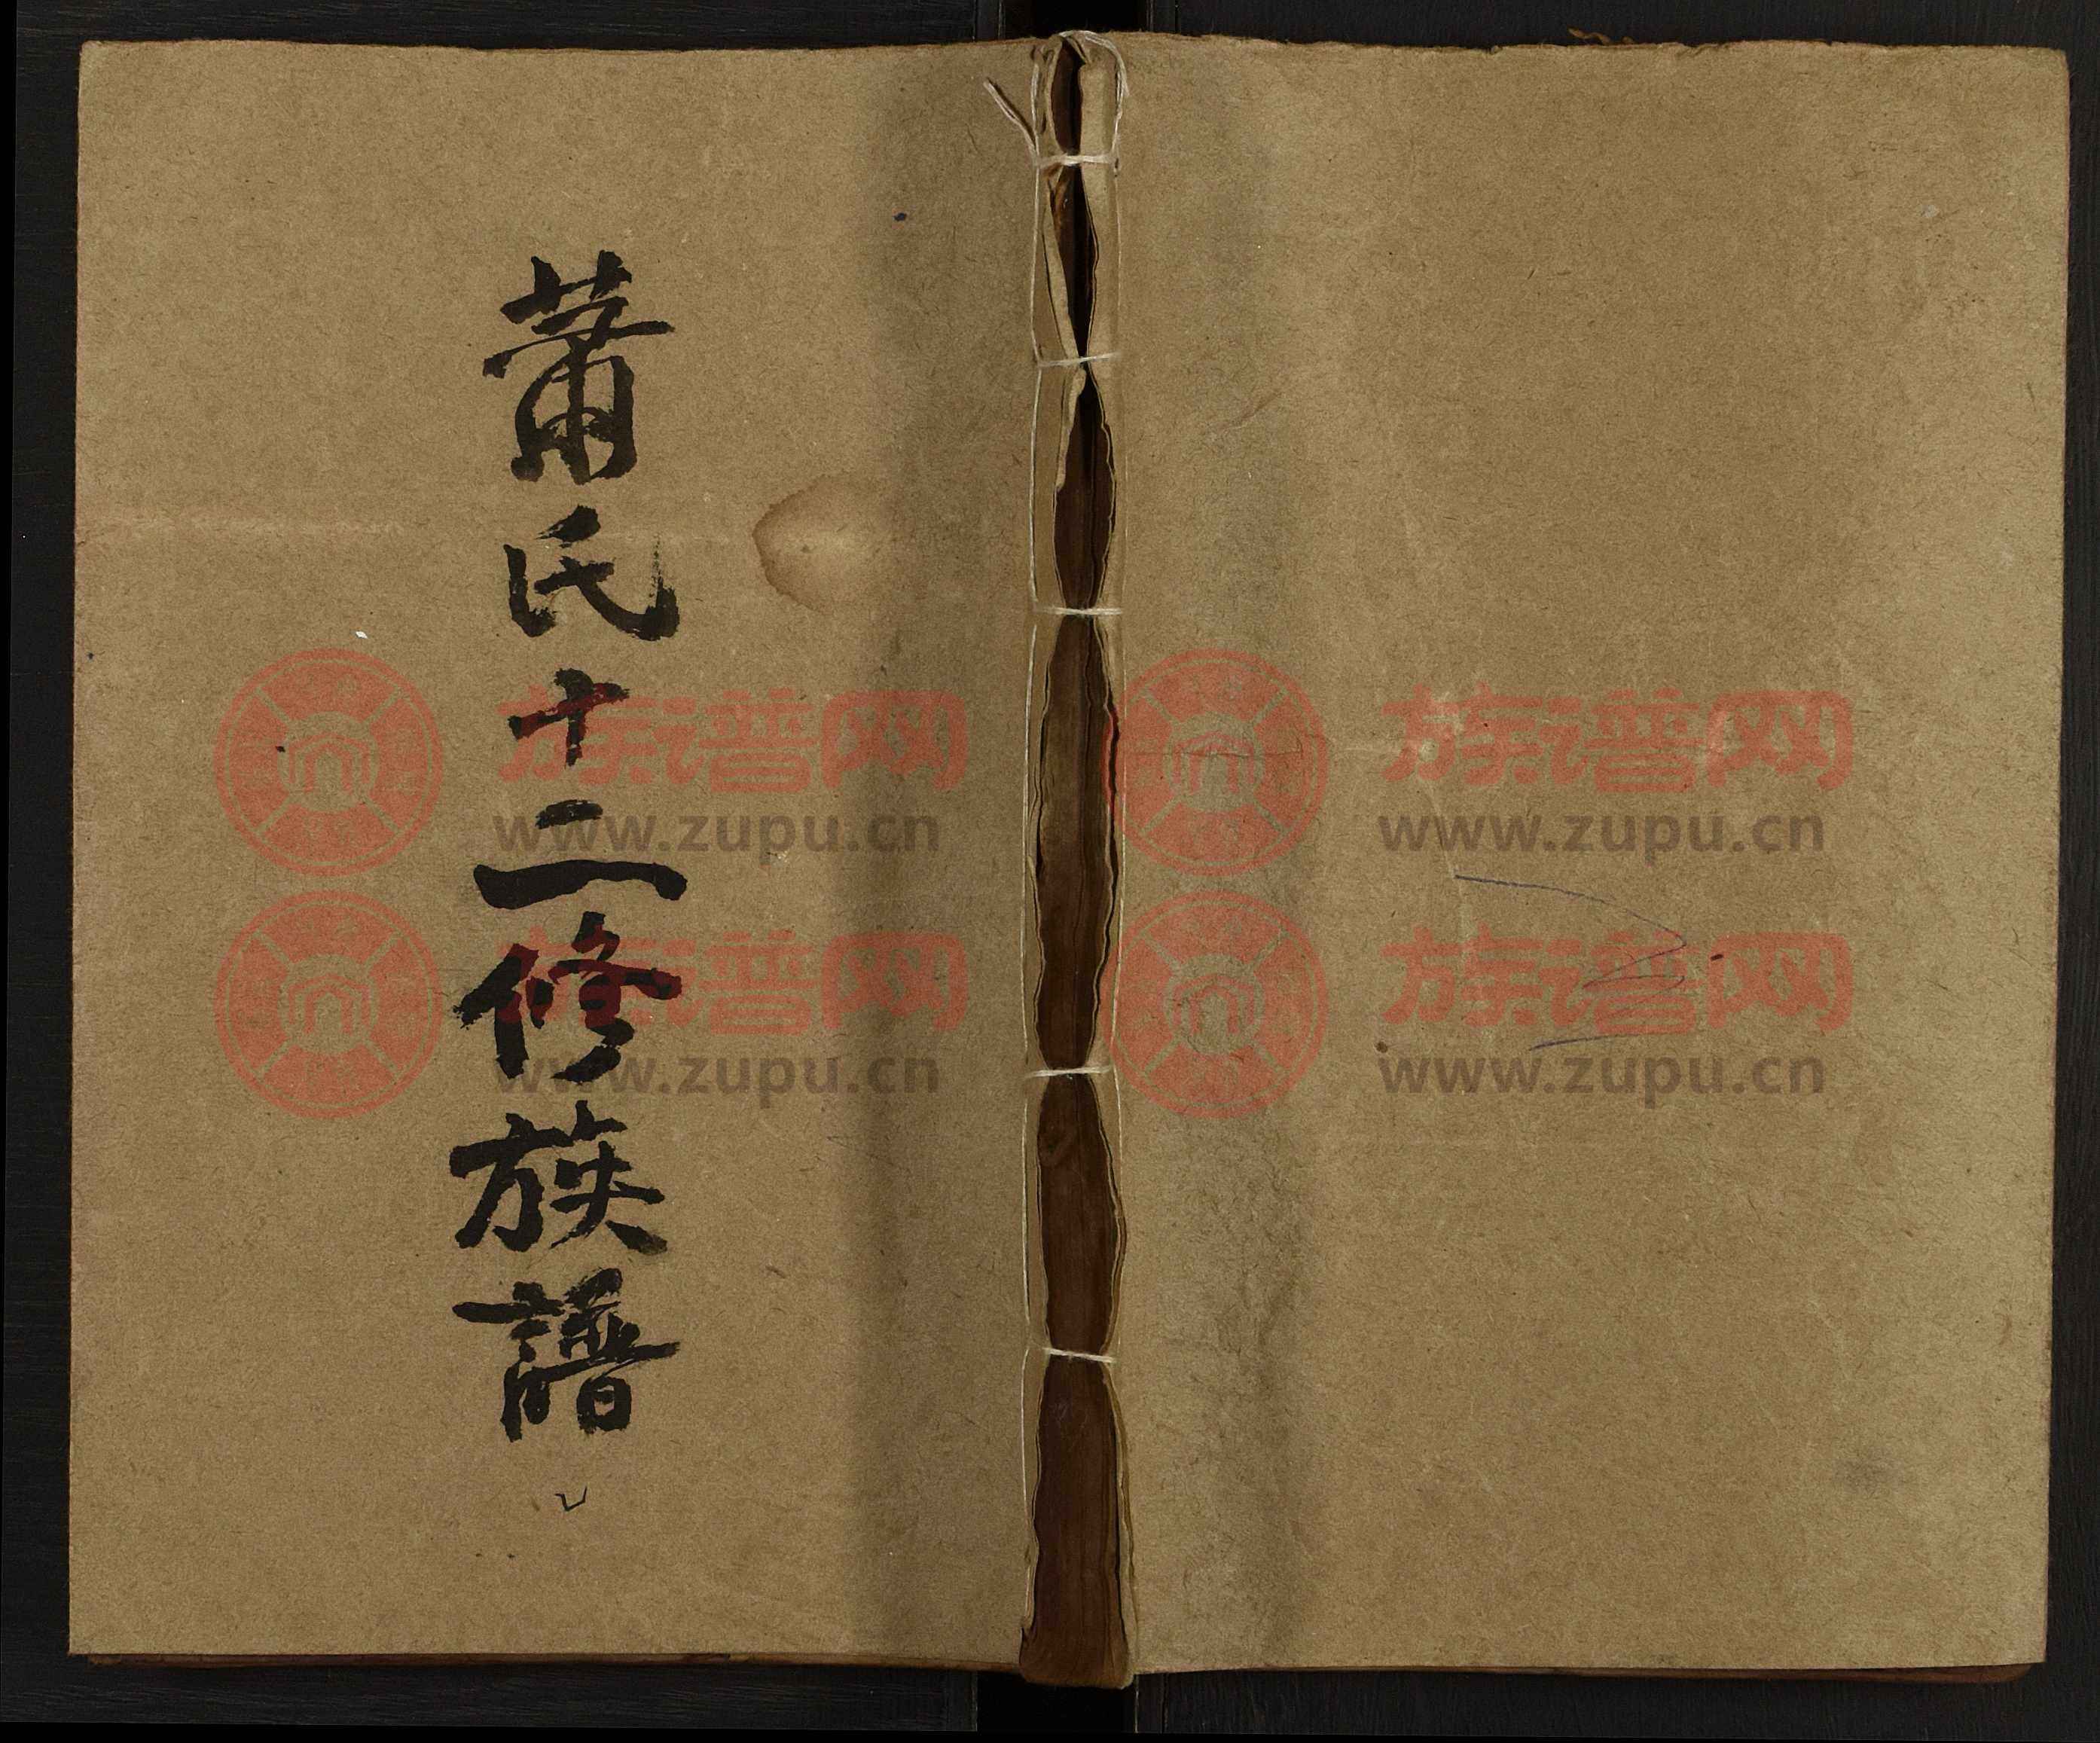 蕭氏十二修族譜
族谱网
www.zupu.cn
族谱网
www.zupu.cn
族谱网
www.zupu.cn
族谱网
www.zupu.cn